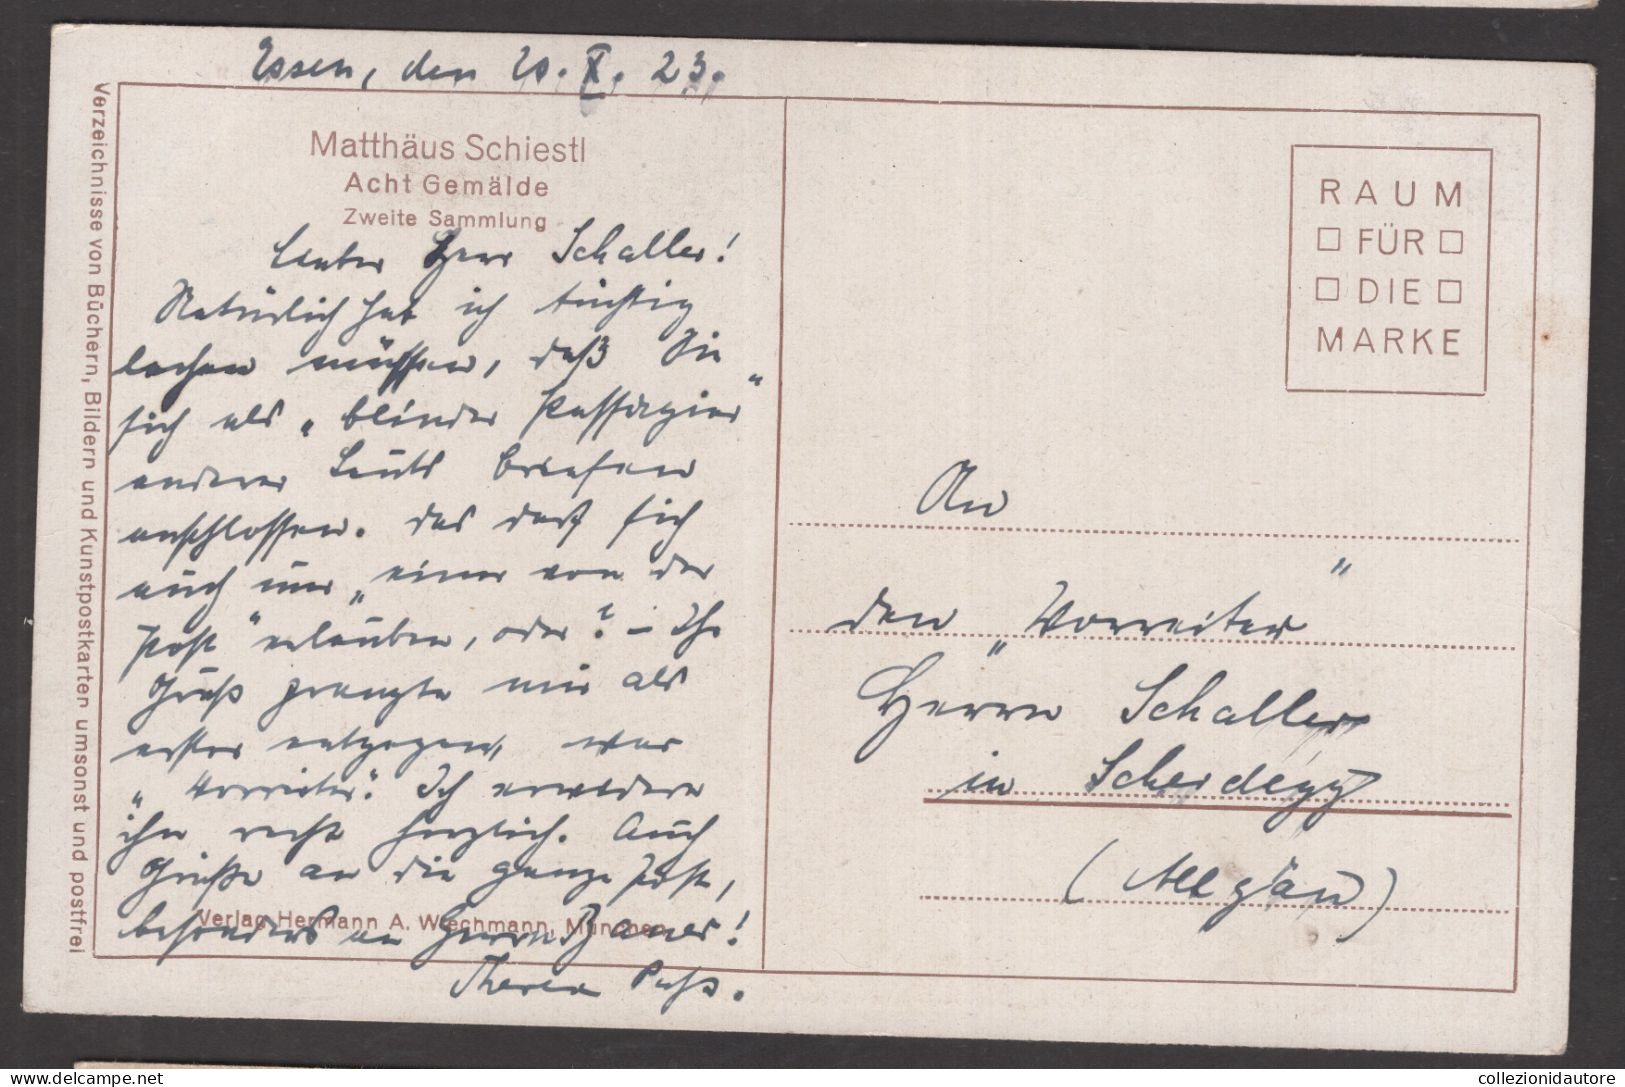 Essen, den 20. X. 23.
Matthäus Schiestl
Acht Gemälde
Zweite Sammlung
Lieber Herr Schaller!
Natürlich hab ich tüchtig
lachen müssen, daß Sie
sich als „blinder Passagier"
anderer Leuts Briefen
anschlossen. Das darf sich
auch nur „einer von der
Post" erlauben, oder? – Ihr
Gruß grenzte mir als
erster entgegen, war
„Vorreiter". Ich erwidere
ihn recht herzlich. Auch
Grüße an die ganze Post,
besonders an Herrn Baner!
Verlag Hermann A. Wiechmann, München
Verzeichnisse von Büchern, Bildern und Kunstpostkarten umsonst und postfrei
RAUM
FÜR
DIE
MARKE
An
den „Vorreiter"
Herrn Schaller
in Scheidegg
(Allgäu)
collezionidautore